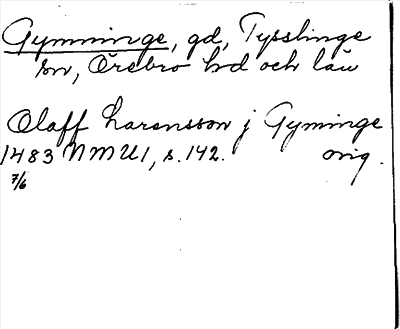 Gymninge, gd, Tysslinge
sn, Örebro hd och län
Olaff Larensson j Gyminge
1483 NMU1, s. 142. orig.
7/6